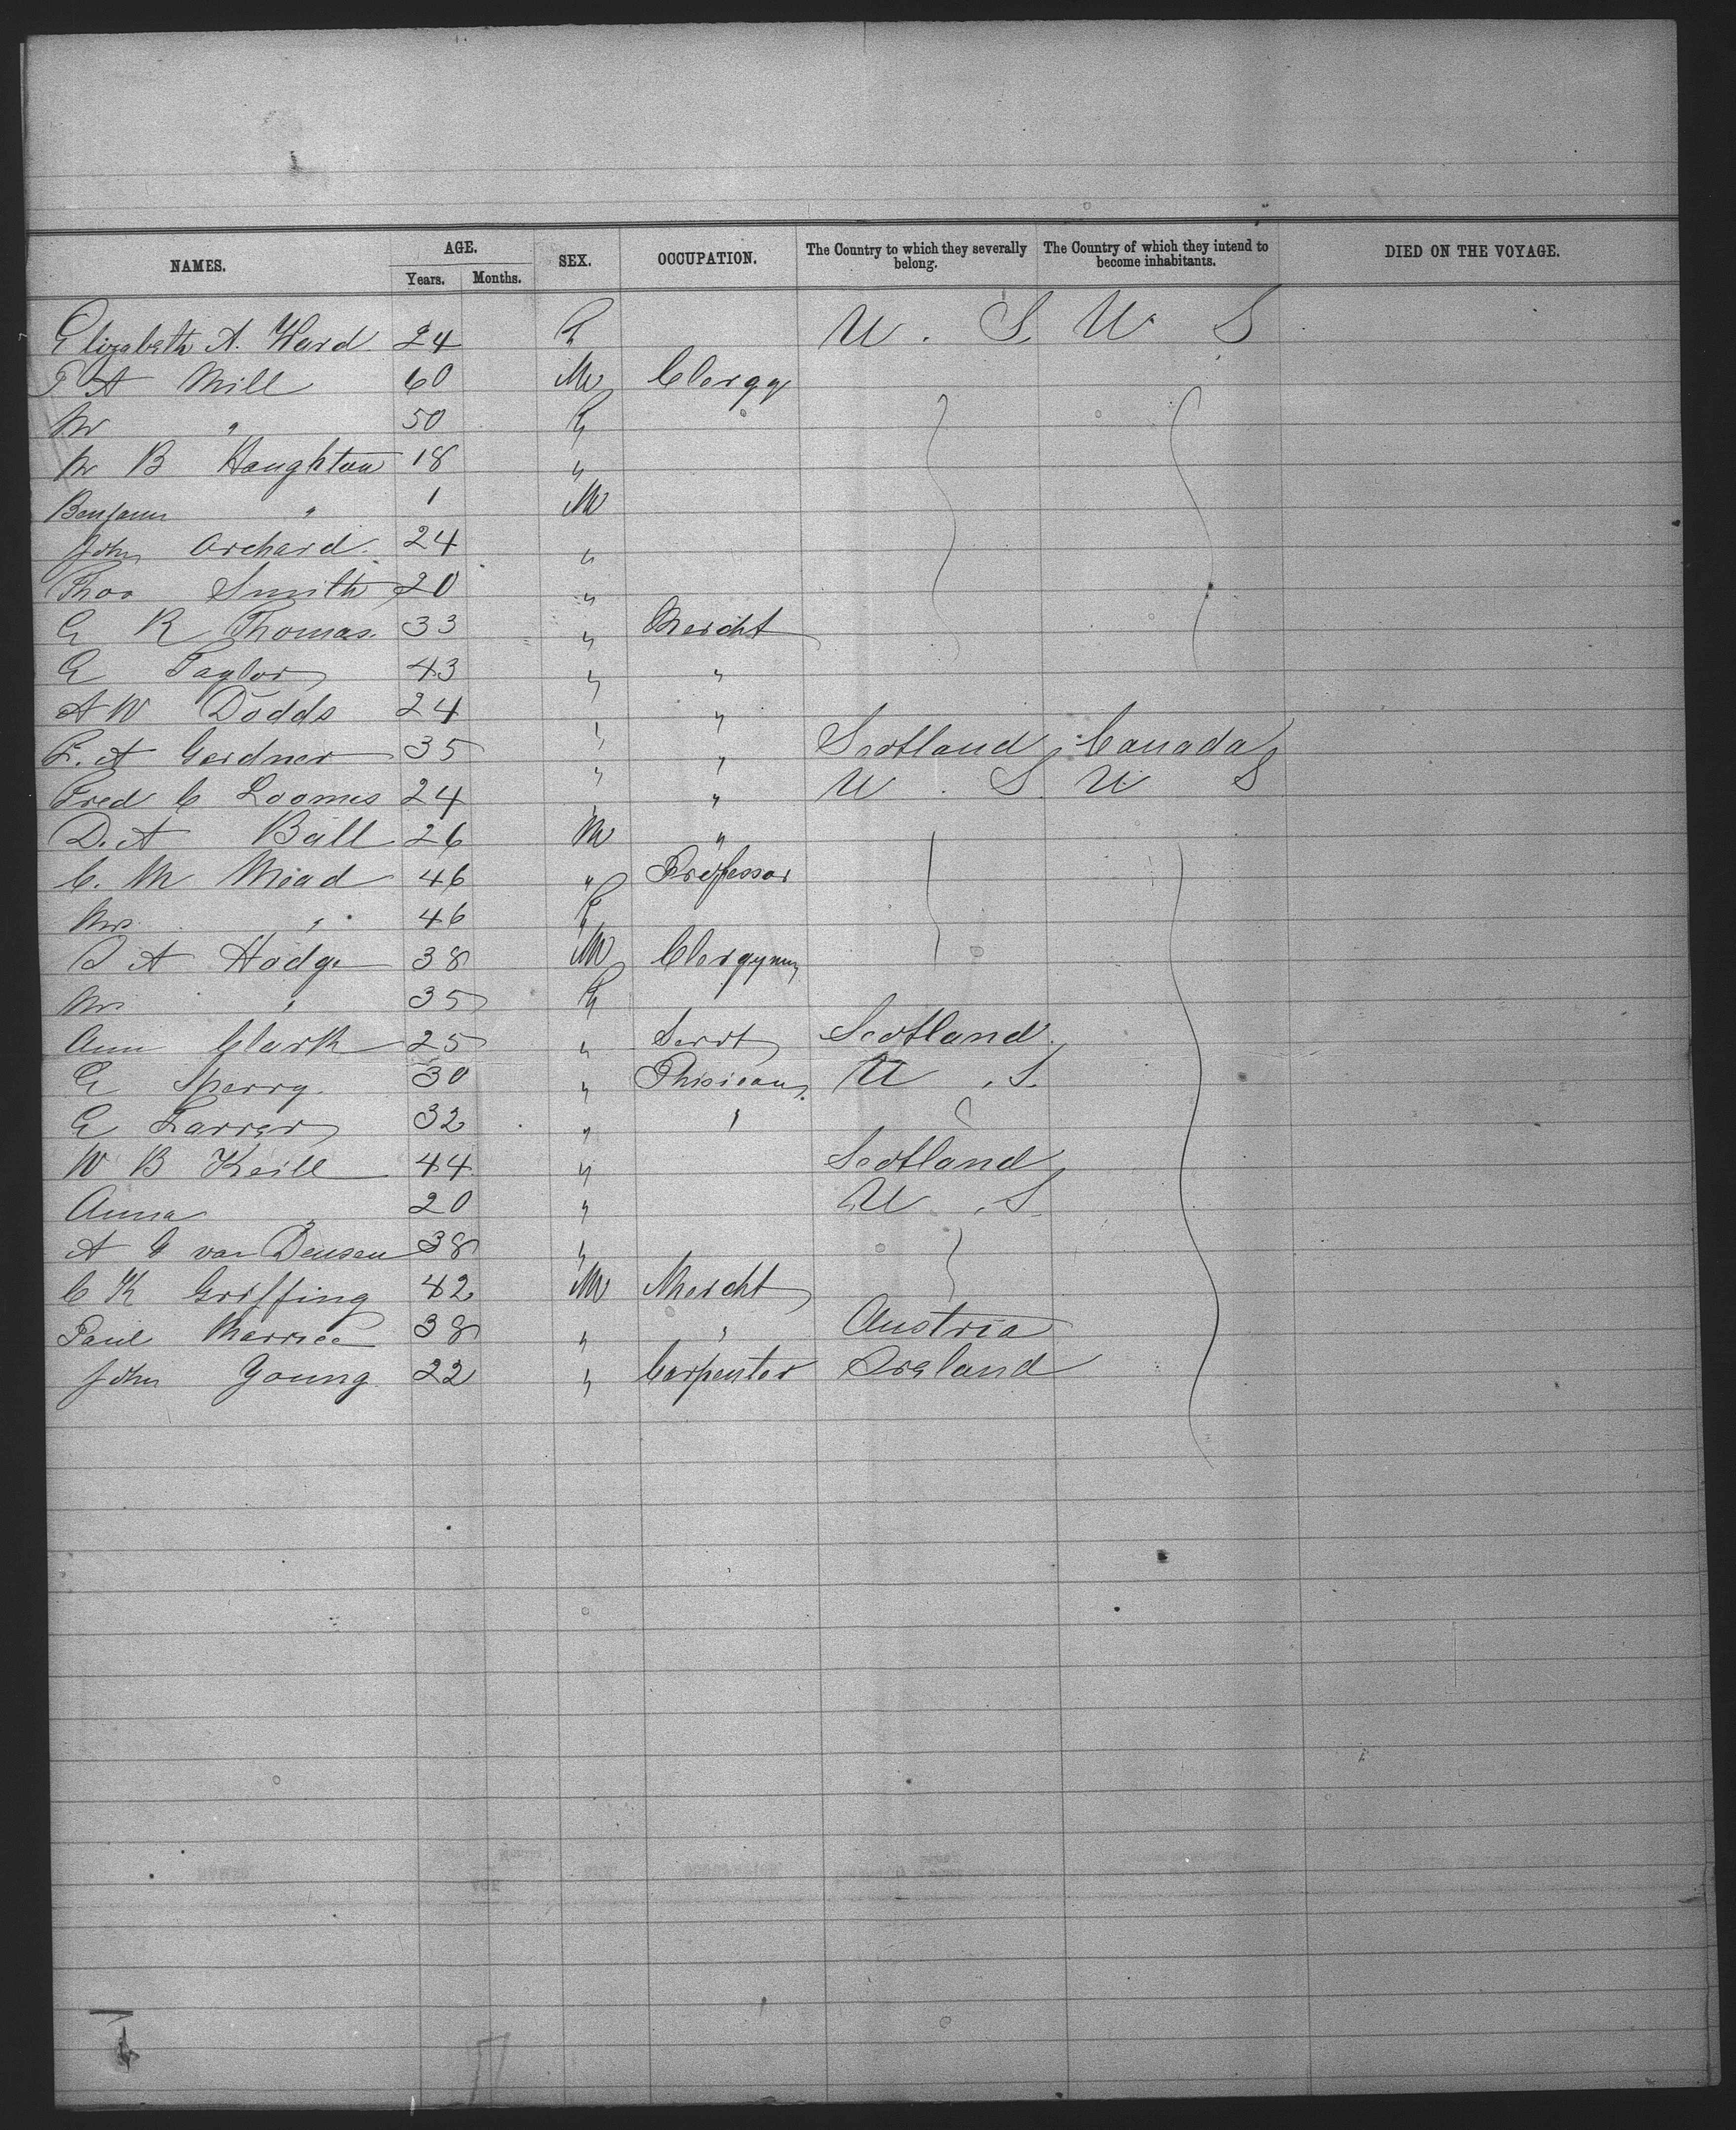 NAMES. AGE. SEX. OCCUPATION. The Country to which they severally belong. The Country of which they intend to become inhabitants. DIED ON THE VOYAGE.
Years. Months.
Elizabeth A. Ward 24 F U. S. U. S
A Mill 60 M Clergy
50 F
B Haughton 18 "
" 1 M
John Orchard. 24 "
Thos Smith 20 "
G R Thomas. 33 " Mercht
G Taylor 43 " "
A W Dodds 24 " "
A Gardner 35 " " Scotland Canada
Fred C Loomis 24 " " U. S. U S
D. A Ball 26 M "
C. M Mead 46 " Professor
Mrs " 46 F
A Hodge 38 M Clergymn
Mrs " 35 F
Ann Clark 25 " Servt Scotland
G Sperry 30 " Phisican. U. S.
G Farrer 32 " "
W B Keill 44 " Scotland
Anna " 20 " U. S.
A G van Deusen 38 "
C K Griffing 42 M Mercht
Paul 38 " " Austria
John Young 22 " Carpenter Ireland